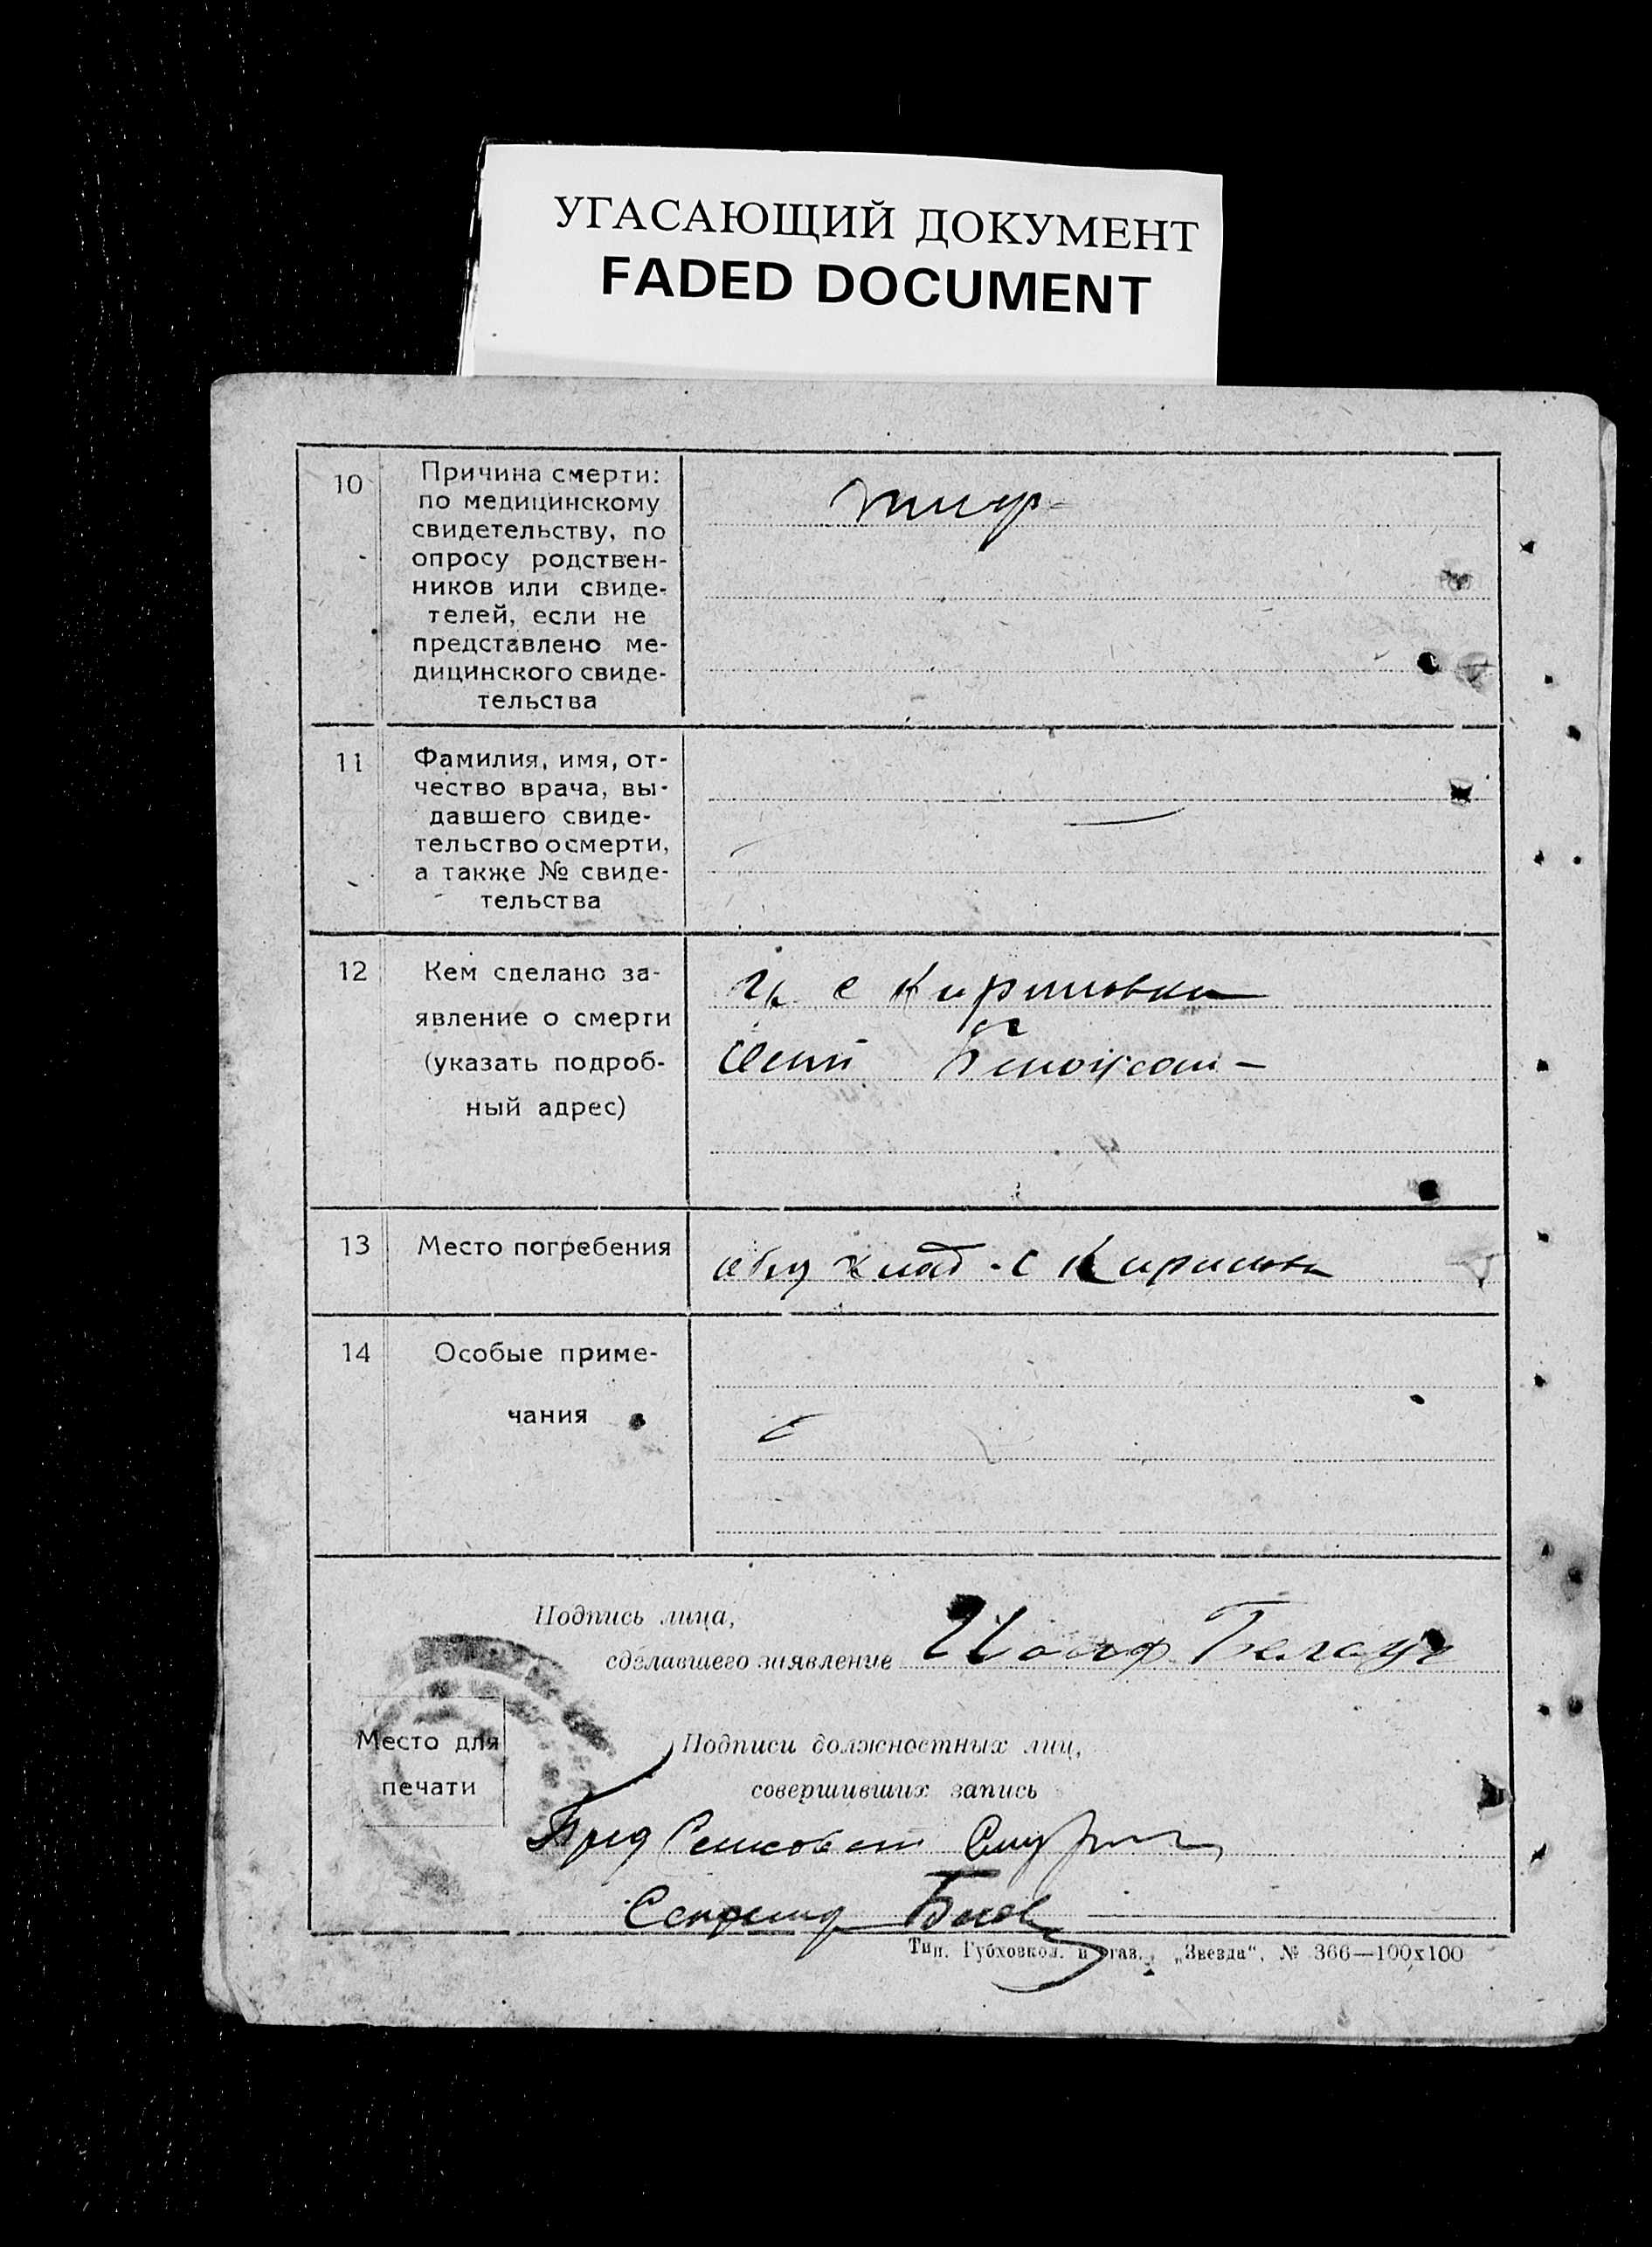 УГАСАЮЩИЙ ДОКУМЕНТ
FADED DOCUMENT
10
Причина смерти:
по медицинскому
свидетельству, по
опросу родствен-
ников или свиде-
телей, если не
представлено ме-
дицинского свиде-
тельства
тиф
11
Фамилия, имя, от-
чество врача, вы-
давшего свиде-
тельство о смерти,
а также № свиде-
тельства
12
Кем сделано за-
явление о смерти
(указать подроб-
ный адрес)
с
13
Место погребения
клад. с
14
Особые приме-
чания
Подпись лица,
сделавшего заявление
Место для
печати
Подписи должностных лиц,
совершивших запись
Пред Сельсовет
Тип. Губхозкол. и газ. „Звезда“, № 366—100x100